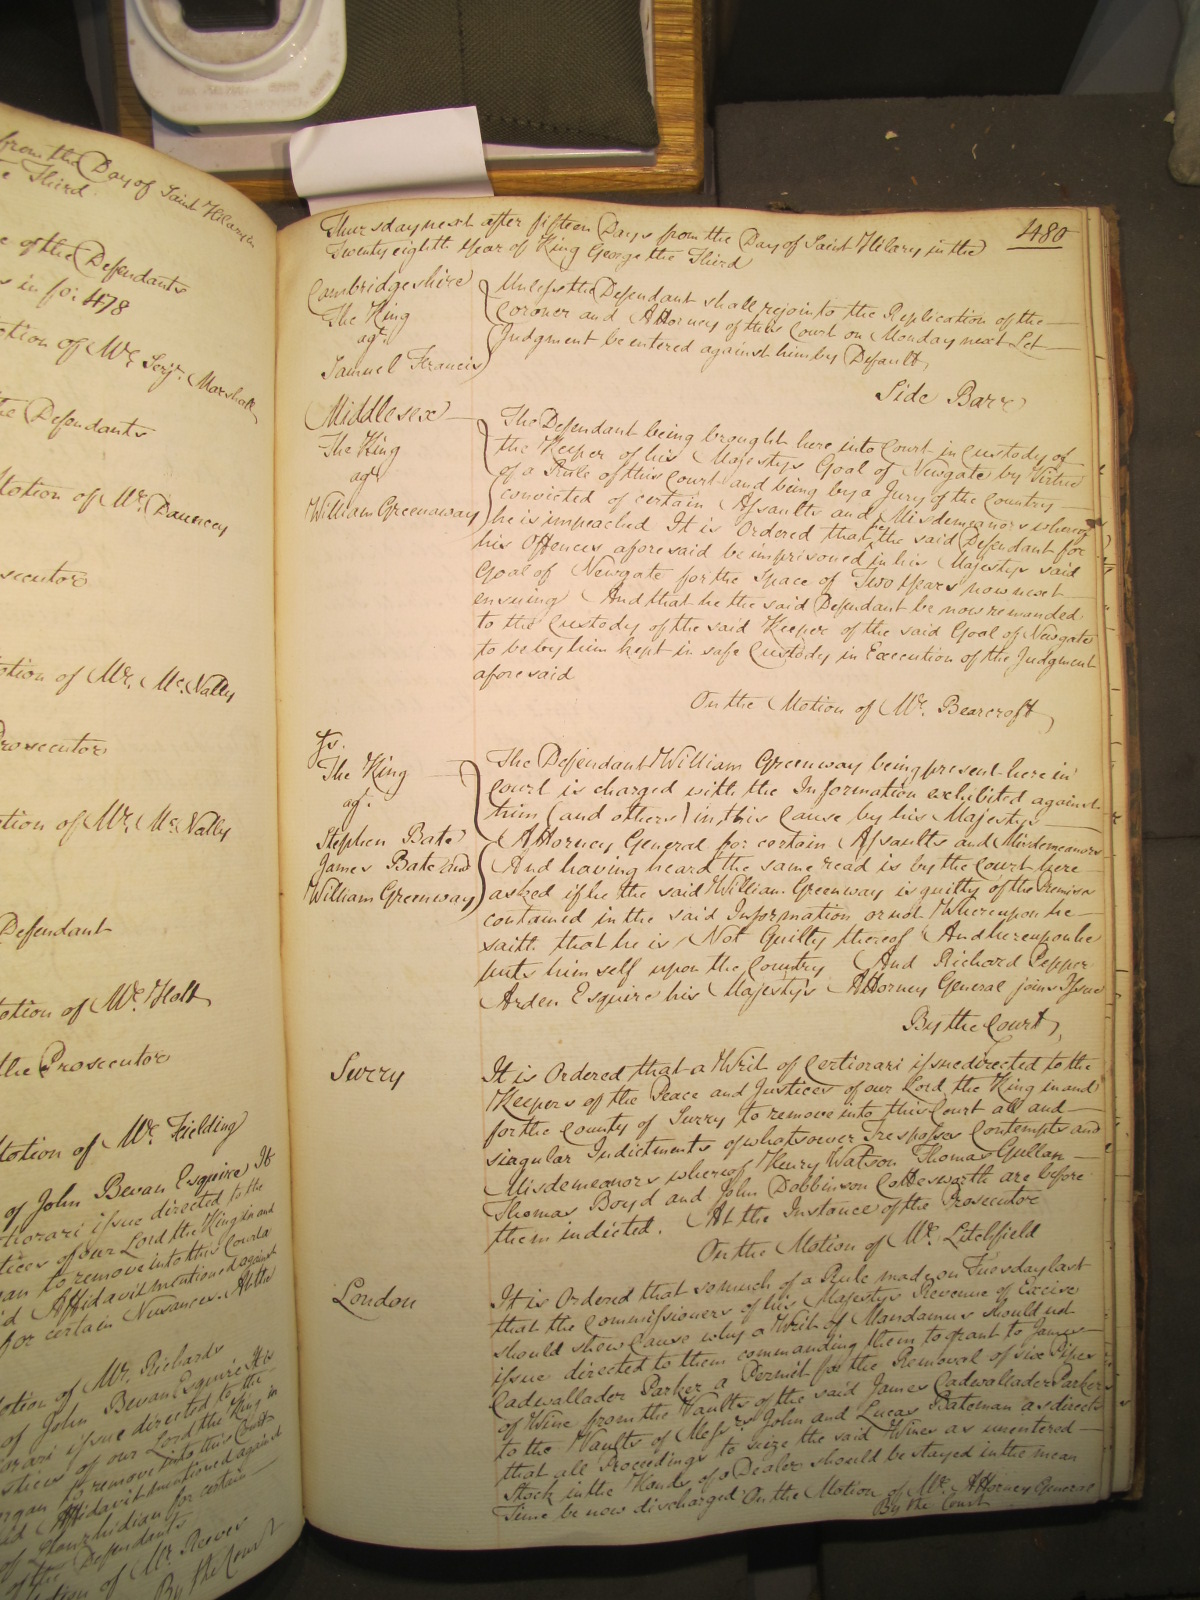 from the Day of Saint Hilary in
e Third
e of the Defendants
s in fo: 478
otion of Mr. Serjt. Marshall
he Defendants
Motion of Mr. Dauncey
secutor
otion of Mr. Mc.Nally
Prosecutor
otion of Mr. Mc.Nally
Defendant
otion of Mr. Holt
the Prosecutor
Motion of Mr. Fielding
of John Bevan Esquire It
tiorari issue directed to the
tices of our Lord the King in and
gan to remove into this Court a
d Affidavit mentioned against
for certain Nusances. At the
Motion of Mr. Richards
of John Bevan Esquire It is
orari issue directed to the
stices of our Lord the King in
organ to remove into this Court
aid Affidavit mentioned against
for certain
of the Defendants
tion of Mr. Reeves
By the Court
480
Thursday next after fifteen Days from the Day of Saint Hilary in the
Twenty eighth Year of King George the Third
Cambridgeshire
The King
agt.
Samuel Francis
Unless the Defendant shall rejoin to the Replication of the
Coroner and Attorney of this Court on Monday next Let
Judgment be entered against him by Default,
Side Barr
Middlesex
The King
agt.
William Greenaway
The Defendant being brought here into Court in Custody of
the Keeper of his Majestys Goal of Newgate by Virtue
of a Rule of this Court and being by a Jury of the Country
convicted of certain Assaults and Misdemeanors whereof
he is impeached It is Ordered that he the said Defendant for
his Offences aforesaid be imprisoned in his Majestys said
Goal of Newgate for the Space of Two Years now next
ensuing And that he the said Defendant be now remanded
to the Custody of the said Keeper of the said Goal of Newgate
to be by him kept in safe Custody in Execution of the Judgment
aforesaid
On the Motion of Mr. Bearcroft,
The King
agt.
Stephen Bate
James Bate and
William Greenway
The Defendant William Greenway being present here in
Court is charged with the Information exhibited against
him (and others) in this Cause by his Majestys
Attorney General for certain Assaults and Misdemeanors
And having heard the same read is by the Court here
asked if he the said William Greenway is guilty of the Premises
contained in the said Information or not Whereupon he
saith that he is Not Guilty thereof And hereupon he
puts himself upon the Country And Richard Pepper
Arden Esquire his Majesty's Attorney General joins Issue
By the Court,
Surry
It is Ordered that a Writ of Certiorari issue directed to the
Keepers of the Peace and Justices of our Lord the King in and
for the County of Surry to remove into this Court all and
singular Indictments of whatsoever Trespasses Contempts and
Misdemeanors whereof Henry Watson Thomas Gullan
Thomas Boyd and John Dobbinson Cottesworth are before
them indicted. At the Instance of the Prosecutor
On the Motion of Mr. Litchfield
London
It is Ordered that so much of a Rule made on Tuesday last
that the Commissioners of his Majestys Revenue of Excise
should shew Cause why a Writ of Mandamus should not
issue directed to them commanding them to grant to James
Cadwallader Parker a Permit for the Removal of six Pipes
of Wine from the Vaults of the said James Cadwallader Parker
to the Vaults of Messrs. John and Lucas Bateman as directs
that all Proceedings to seize the said Wines as unentered
Stock in the Hands of a Dealer should be stayed in the mean
Time be now discharged On the Motion of Mr. Attorney General
By the Court